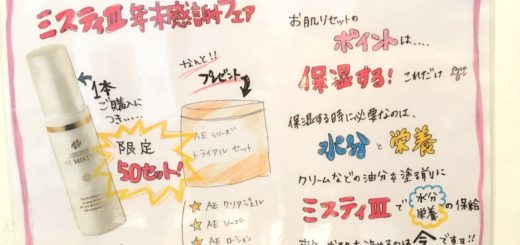 ミスティⅢ 年末感謝フェア
1本
ご購入に
つき……
限定
50セット!
なんと!!
プレゼント
AE シリーズ
トライアル セット
☆ AE クリアジェル
☆ AE ソープ
☆ AE ローション
AE MIST
お肌リセットの
ポイントは....
保湿する! これだけ
保湿する時に必要なのは、
水分と栄養
クリームなどの油分を塗る前に
ミスティⅢで水分栄養の保給